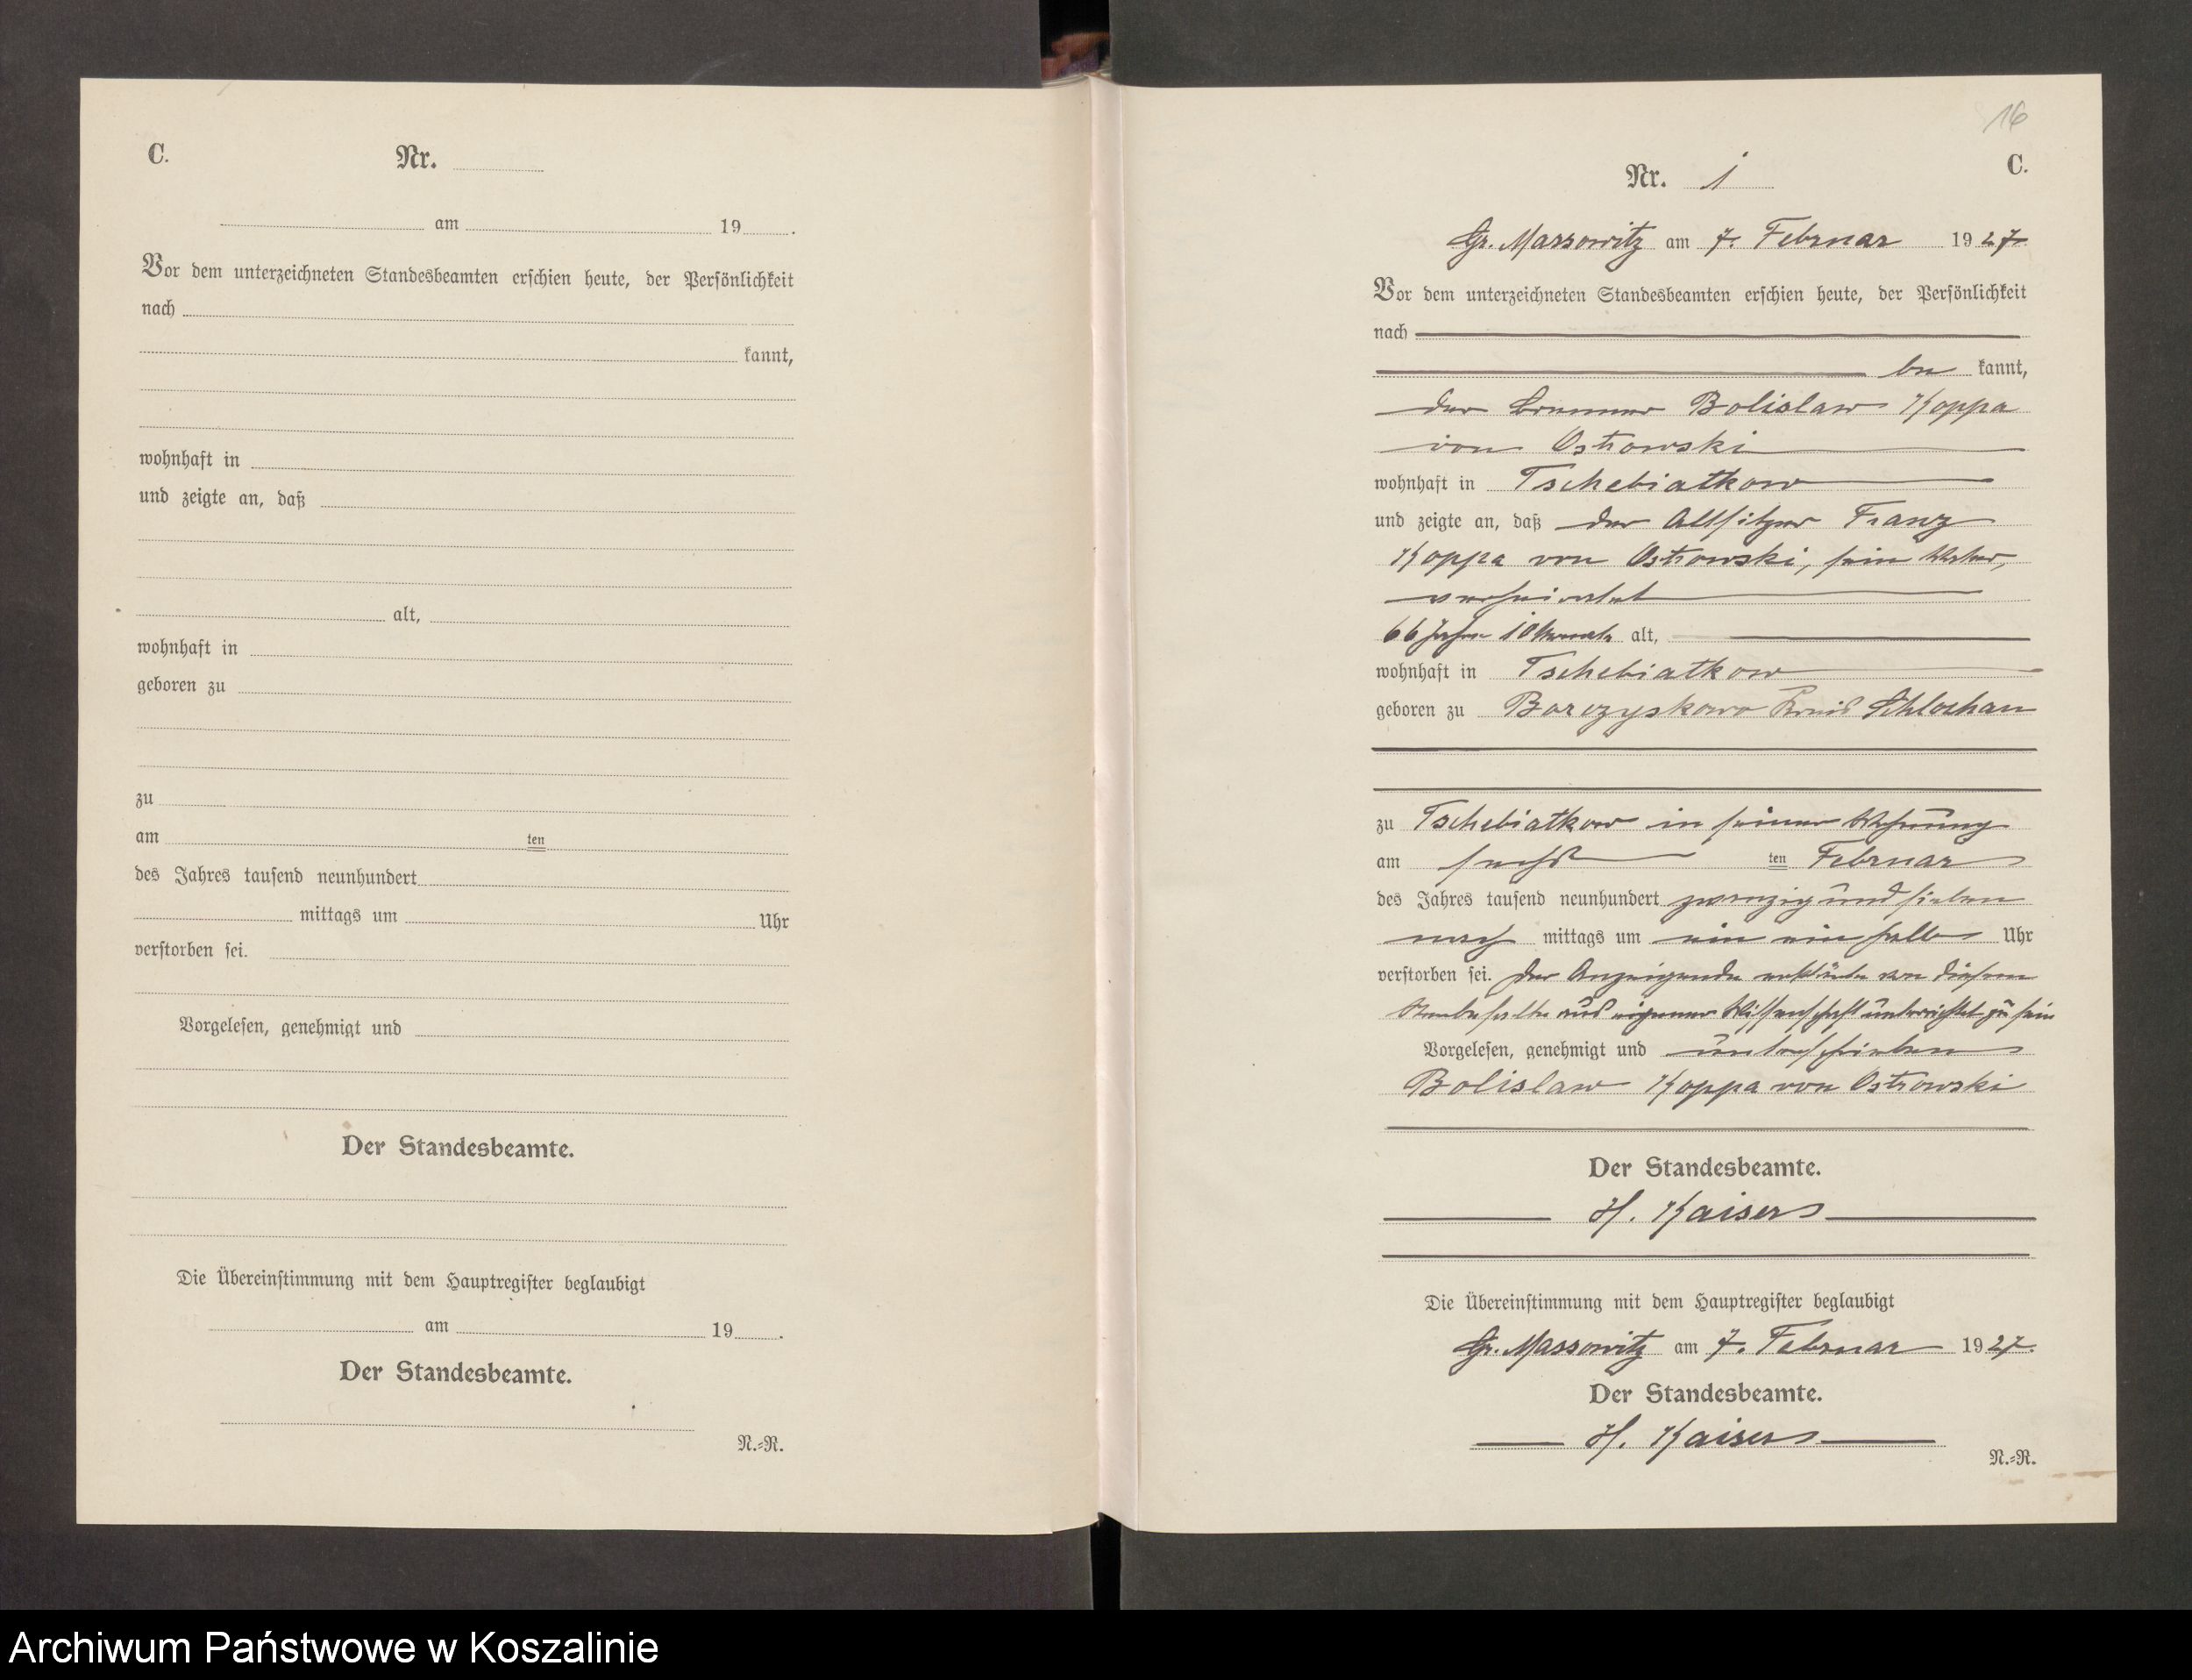 C.
Nr.
am 19 .
Vor dem unterzeichneten Standesbeamten erschien heute, der Persönlichkeit
nach
kannt,
wohnhaft in
und zeigte an, daß
alt,
wohnhaft in
geboren zu
zu
am ten
des Jahres tausend neunhundert
mittags um Uhr
verstorben sei.
Vorgelesen, genehmigt und
Der Standesbeamte.
Die Übereinstimmung mit dem Hauptregister beglaubigt
am 19 .
Der Standesbeamte.
N.=R.
16
C.
Nr. 1
Gr. Massowitz am 7. Februar 1927
Vor dem unterzeichneten Standesbeamten erschien heute, der Persönlichkeit
nach
be kannt,
der Brenner Bolislaw Koppa
von Ostrowski
wohnhaft in Tschebiatkow
und zeigte an, daß der Altsitzer Franz
Koppa von Ostrowski, sein Vater,
verheiratet
66 Jahre 10 Monate alt,
wohnhaft in Tschebiatkow
geboren zu Borzyskowo Kreis Schlochau
zu Tschebiatkow in seiner Wohnung
am sechs ten Februar
des Jahres tausend neunhundert zwanzig und sieben
nach mittags um ein ein halb Uhr
verstorben sei. Der Anzeigende erklärte von diesem
Sterbefalle aus eigener Wissenschaft unterrichtet zu sein
Vorgelesen, genehmigt und unterschrieben
Bolislaw Koppa von Ostrowski
Der Standesbeamte.
H. Kaisers
Die Übereinstimmung mit dem Hauptregister beglaubigt
Gr. Massowitz am 7. Februar 1927.
Der Standesbeamte.
H. Kaisers
N.=R.
Archiwum Państwowe w Koszalinie